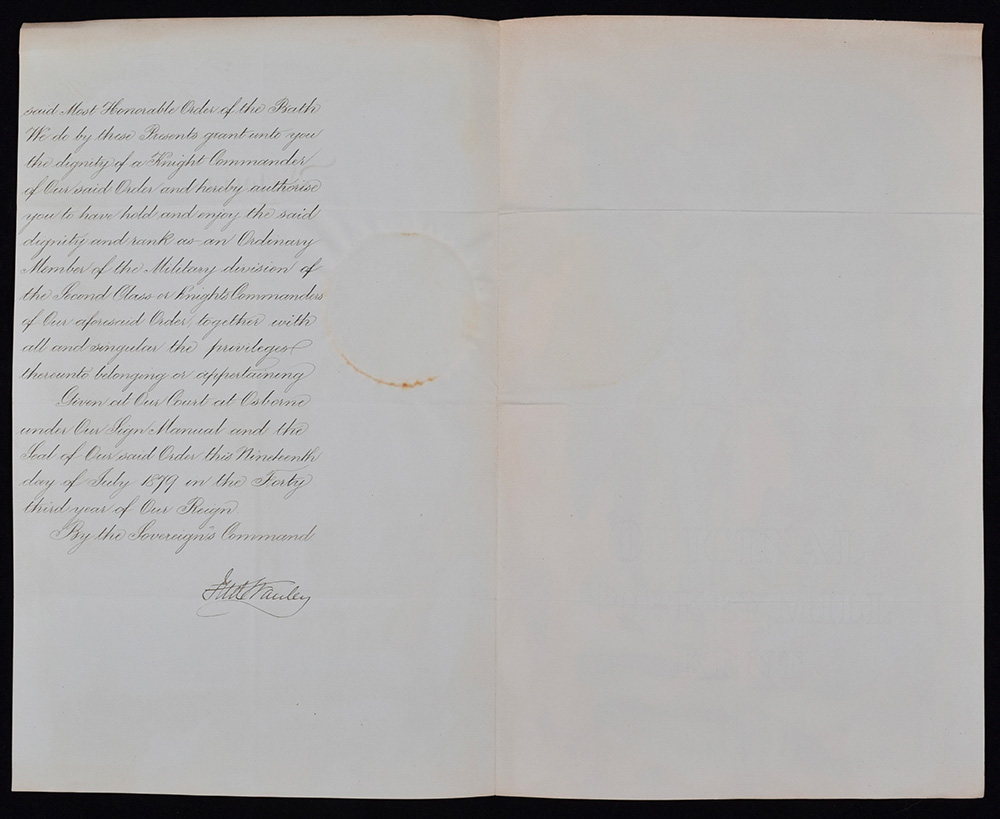 said Most Honorable Order of the Bath
We do by these Presents grant unto you
the dignity of a Knight Commander
of Our said Order and hereby authorise
you to have hold and enjoy the said
dignity and rank as an Ordinary
Member of the Military division of
the Second Class or Knights Commanders
of Our aforesaid Order, together with
all and singular the privileges
thereunto belonging or appertaining
Given at Our Court at Osborne
under Our Sign Manual and the
Seal of Our said Order this Nineteenth
day of July 1879 in the Forty
third year of Our Reign.
By the Sovereign's Command
Stanley